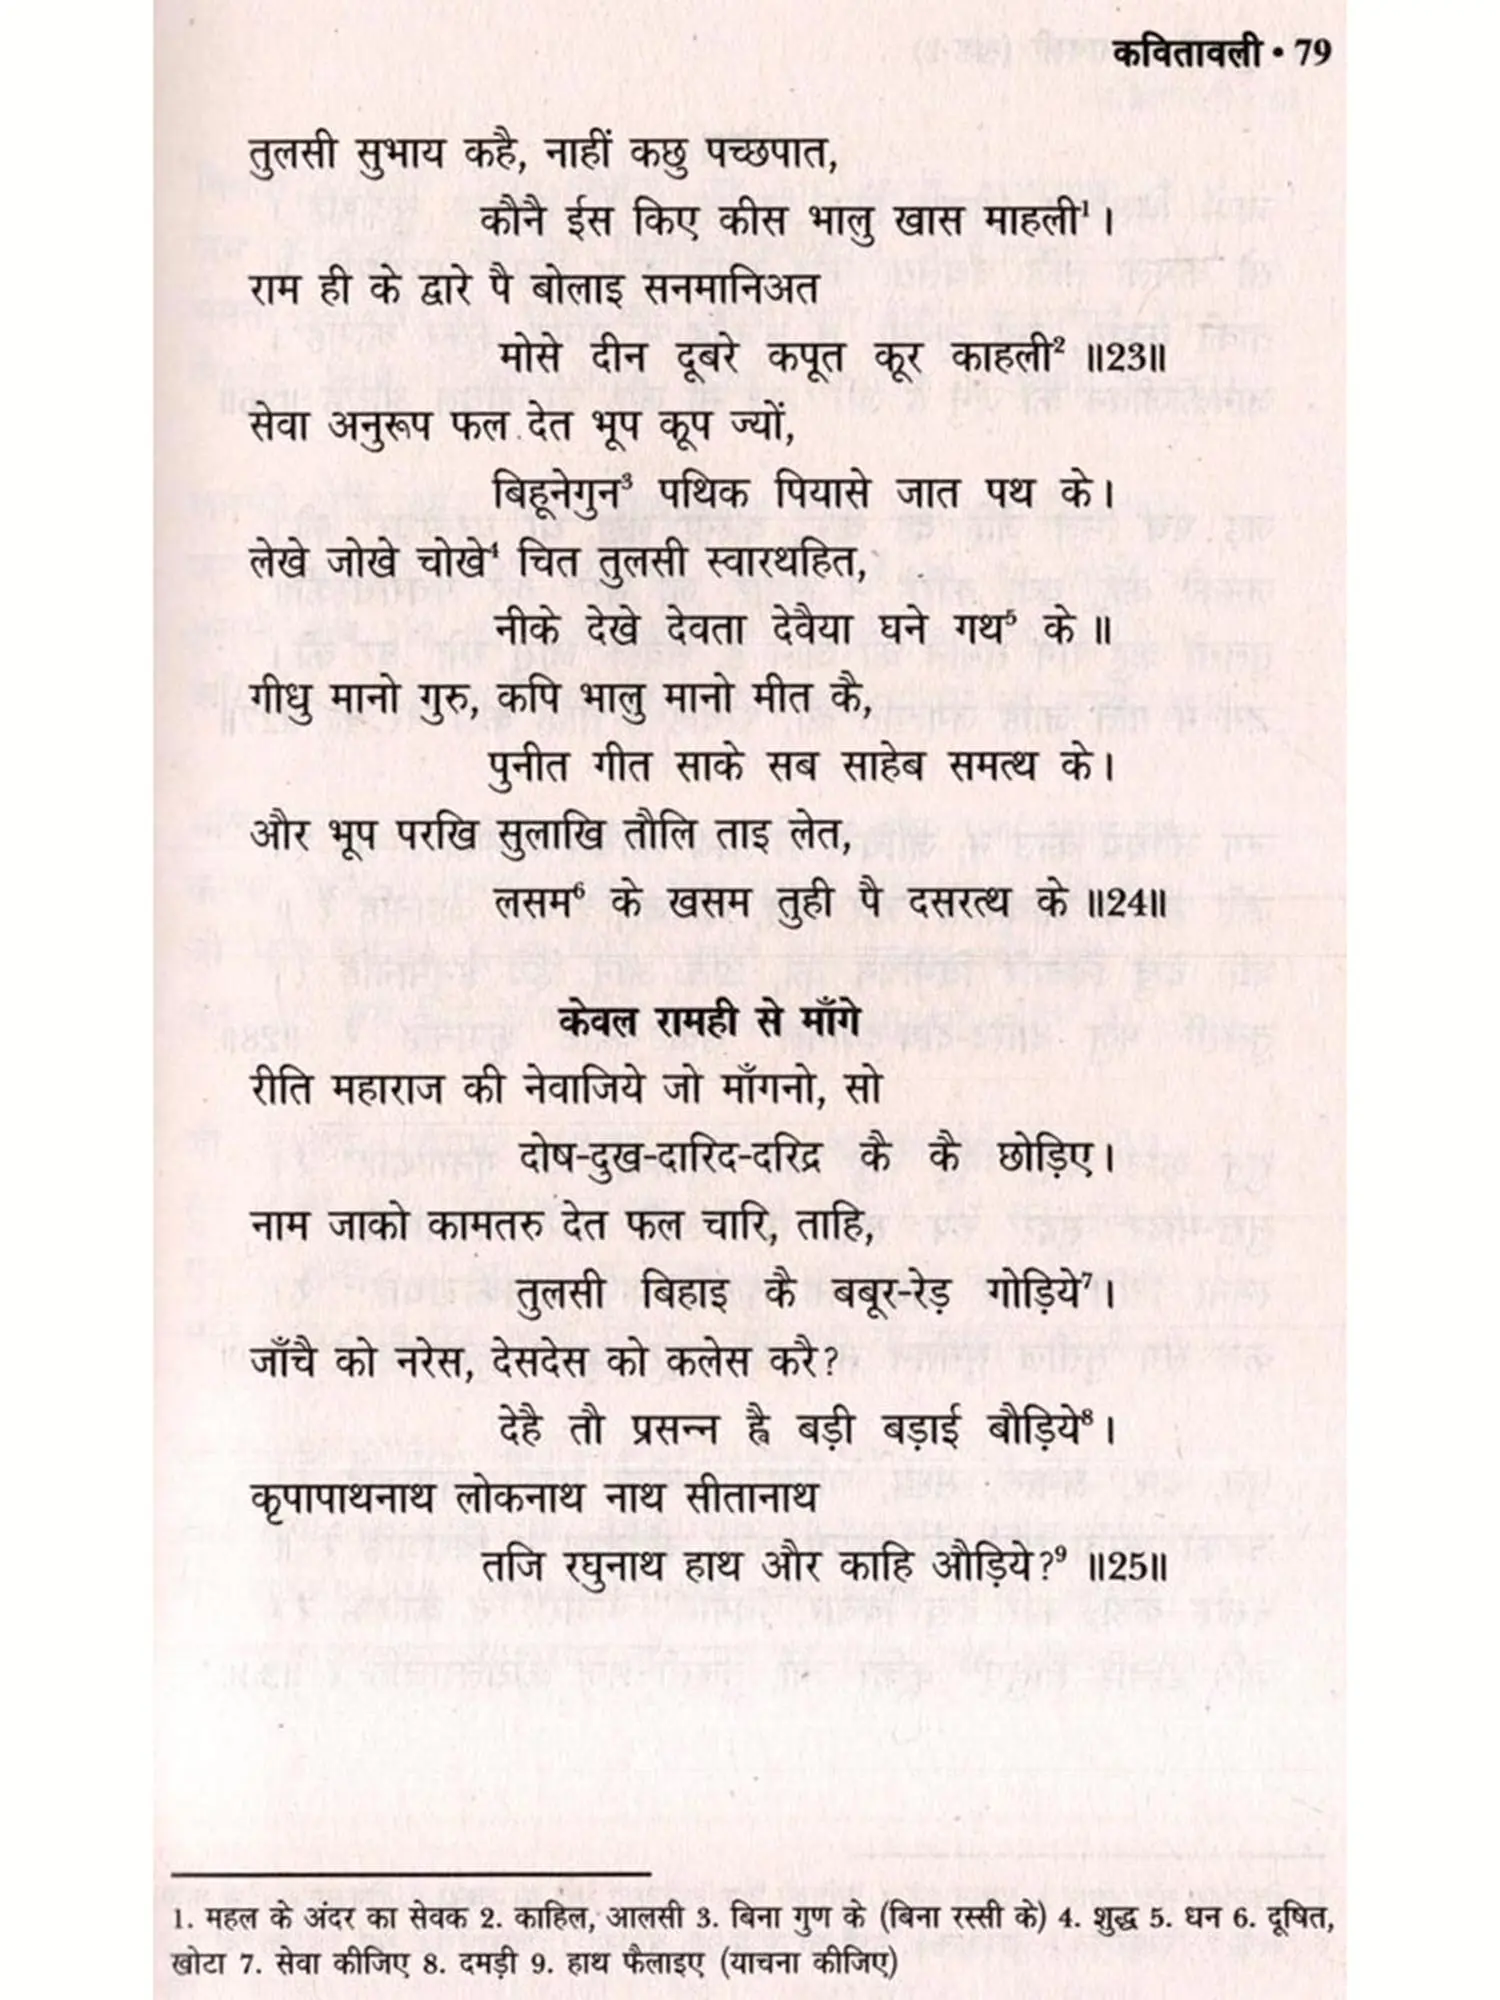 कवितावली • 79
तुलसी सुभाय कहै, नाहीं कछु पच्छपात,
कौनै ईस किए कीस भालु खास माहली¹।
राम ही के द्वारे पै बोलाइ सनमानिअत
मोसे दीन दूबरे कपूत कूर काहली² ॥23॥
सेवा अनुरूप फल देत भूप कूप ज्यों,
बिहूनेगुन³ पथिक पियासे जात पथ के।
लेखे जोखे चोखे⁴ चित तुलसी स्वारथहित,
नीके देखे देवता देवैया घने गथ⁵ के॥
गीधु मानो गुरु, कपि भालु मानो मीत कै,
पुनीत गीत साके सब साहेब समत्थ के।
और भूप परखि सुलाखि तौलि ताइ लेत,
लसम⁶ के खसम तुही पै दसरत्थ के ॥24॥
केवल रामही से माँगे
रीति महाराज की नेवाजिये जो माँगनो, सो
दोष-दुख-दारिद-दरिद्र कै कै छोड़िए।
नाम जाको कामतरु देत फल चारि, ताहि,
तुलसी बिहाइ कै बबूर-रेड़ गोड़िये⁷।
जाँचै को नरेस, देसदेस को कलेस करै?
देहै तौ प्रसन्न ह्वै बड़ी बड़ाई बौड़िये⁸।
कृपापाथनाथ लोकनाथ नाथ सीतानाथ
तजि रघुनाथ हाथ और काहि औड़िये?⁹ ॥25॥
1. महल के अंदर का सेवक 2. काहिल, आलसी 3. बिना गुण के (बिना रस्सी के) 4. शुद्ध 5. धन 6. दूषित,
खोटा 7. सेवा कीजिए 8. दमड़ी 9. हाथ फैलाइए (याचना कीजिए)